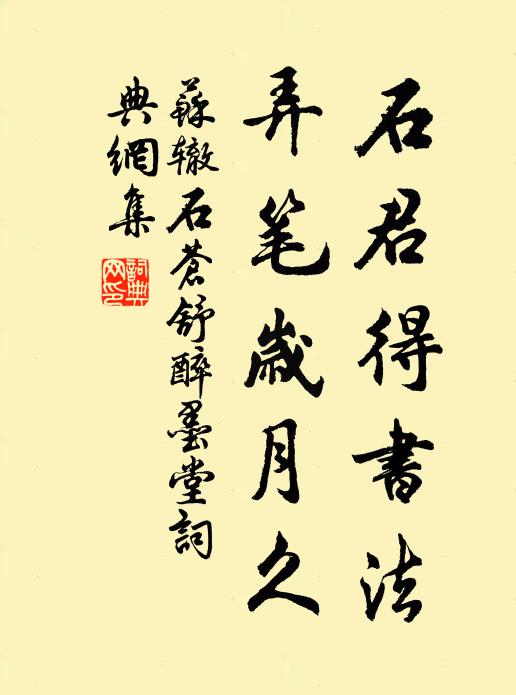 石君得書法
弄笔歲月久
蘇辙石蒼舒醉墨堂詞
典網集
詞典网印